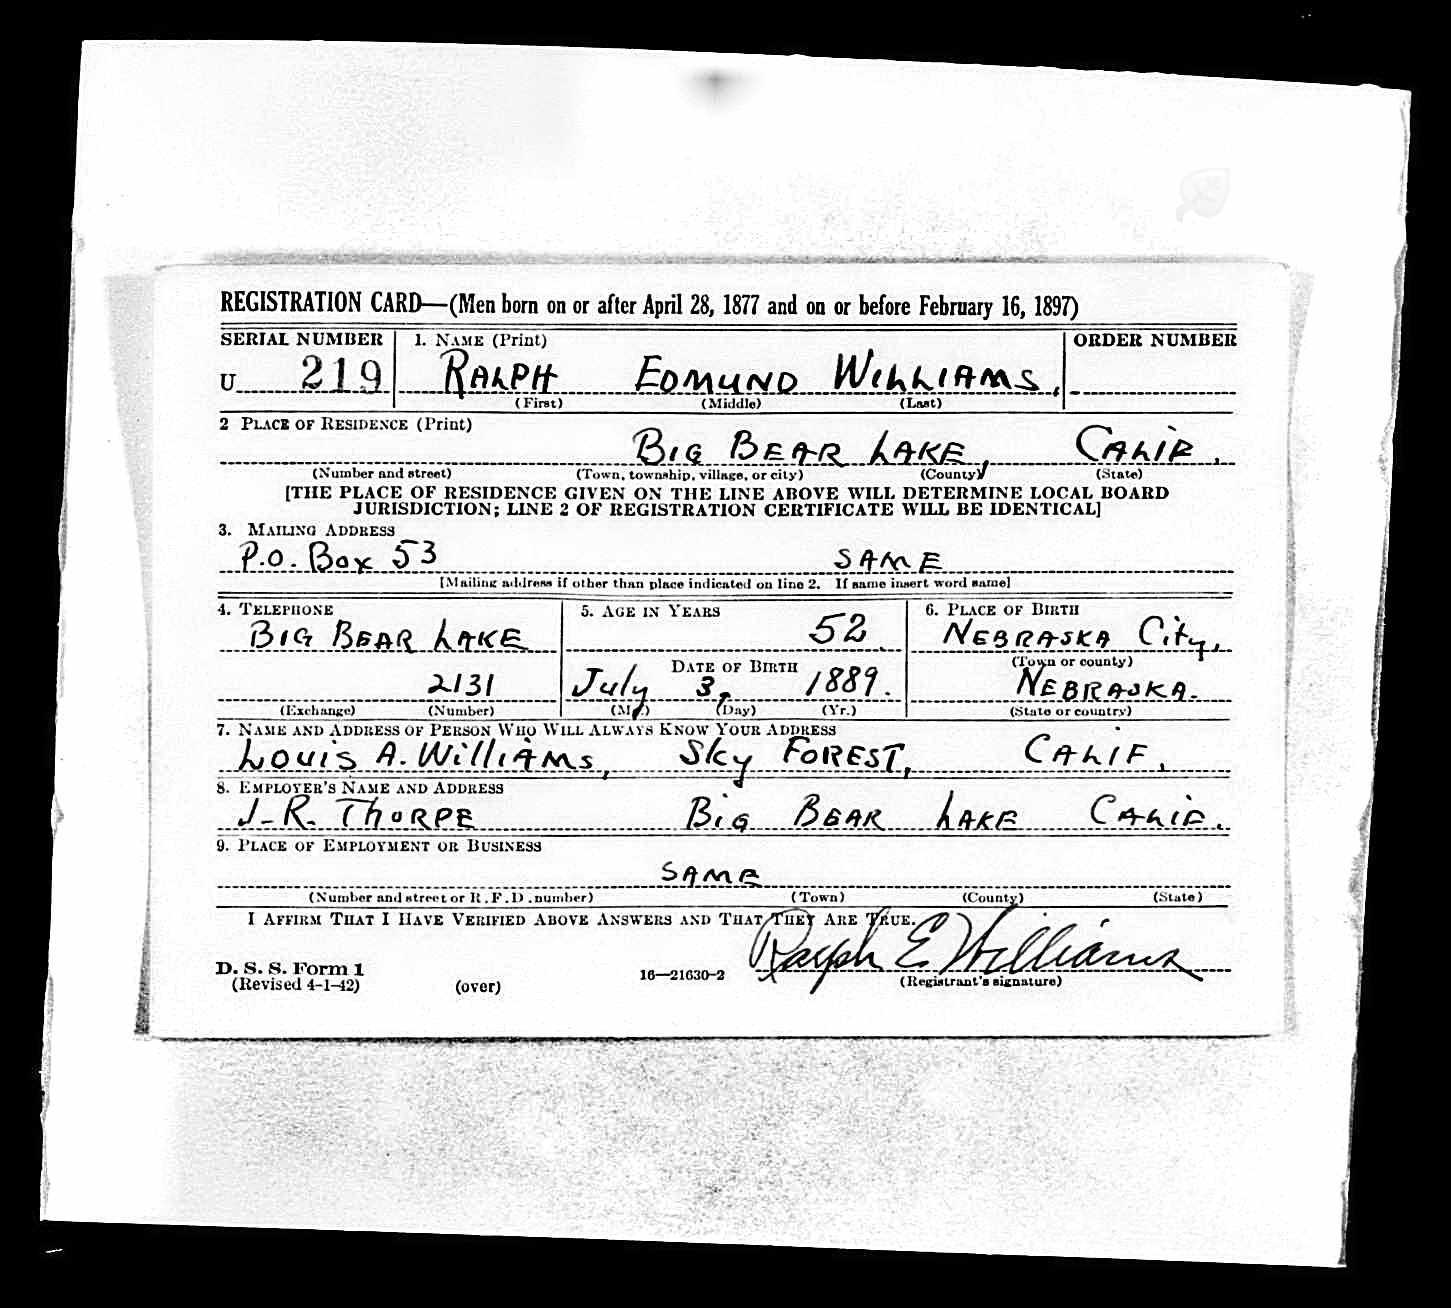 REGISTRATION CARD—(Men born on or after April 28, 1877 and on or before February 16, 1897)
SERIAL NUMBER 1. NAME (Print) ORDER NUMBER
U 219 RALPH EDMUND WILLIAMS.
(First) (Middle) (Last)
2 PLACE OF RESIDENCE (Print)
BIG BEAR LAKE, CALIF.
(Number and street) (Town, township, village, or city) (County) (State)
[THE PLACE OF RESIDENCE GIVEN ON THE LINE ABOVE WILL DETERMINE LOCAL BOARD
JURISDICTION; LINE 2 OF REGISTRATION CERTIFICATE WILL BE IDENTICAL]
3. MAILING ADDRESS
P.O. Box 53 SAME
[Mailing address if other than place indicated on line 2. If same insert word same]
4. TELEPHONE 5. AGE IN YEARS 6. PLACE OF BIRTH
BIG BEAR LAKE 52 NEBRASKA City,
DATE OF BIRTH (Town or county)
2131 July 3, 1889. NEBRASKA.
(Exchange) (Number) (Mo.) (Day) (Yr.) (State or country)
7. NAME AND ADDRESS OF PERSON WHO WILL ALWAYS KNOW YOUR ADDRESS
LOUIS A. WILLIAMS, SKY FOREST, CALIF.
8. EMPLOYER'S NAME AND ADDRESS
J.R. THORPE BIG BEAR LAKE CALIF.
9. PLACE OF EMPLOYMENT OR BUSINESS
SAME
(Number and street or R.F.D. number) (Town) (County) (State)
I AFFIRM THAT I HAVE VERIFIED ABOVE ANSWERS AND THAT THEY ARE TRUE.
Ralph E Williams
D. S. S. Form 1 16—21630-2 (Registrant's signature)
(Revised 4-1-42) (over)